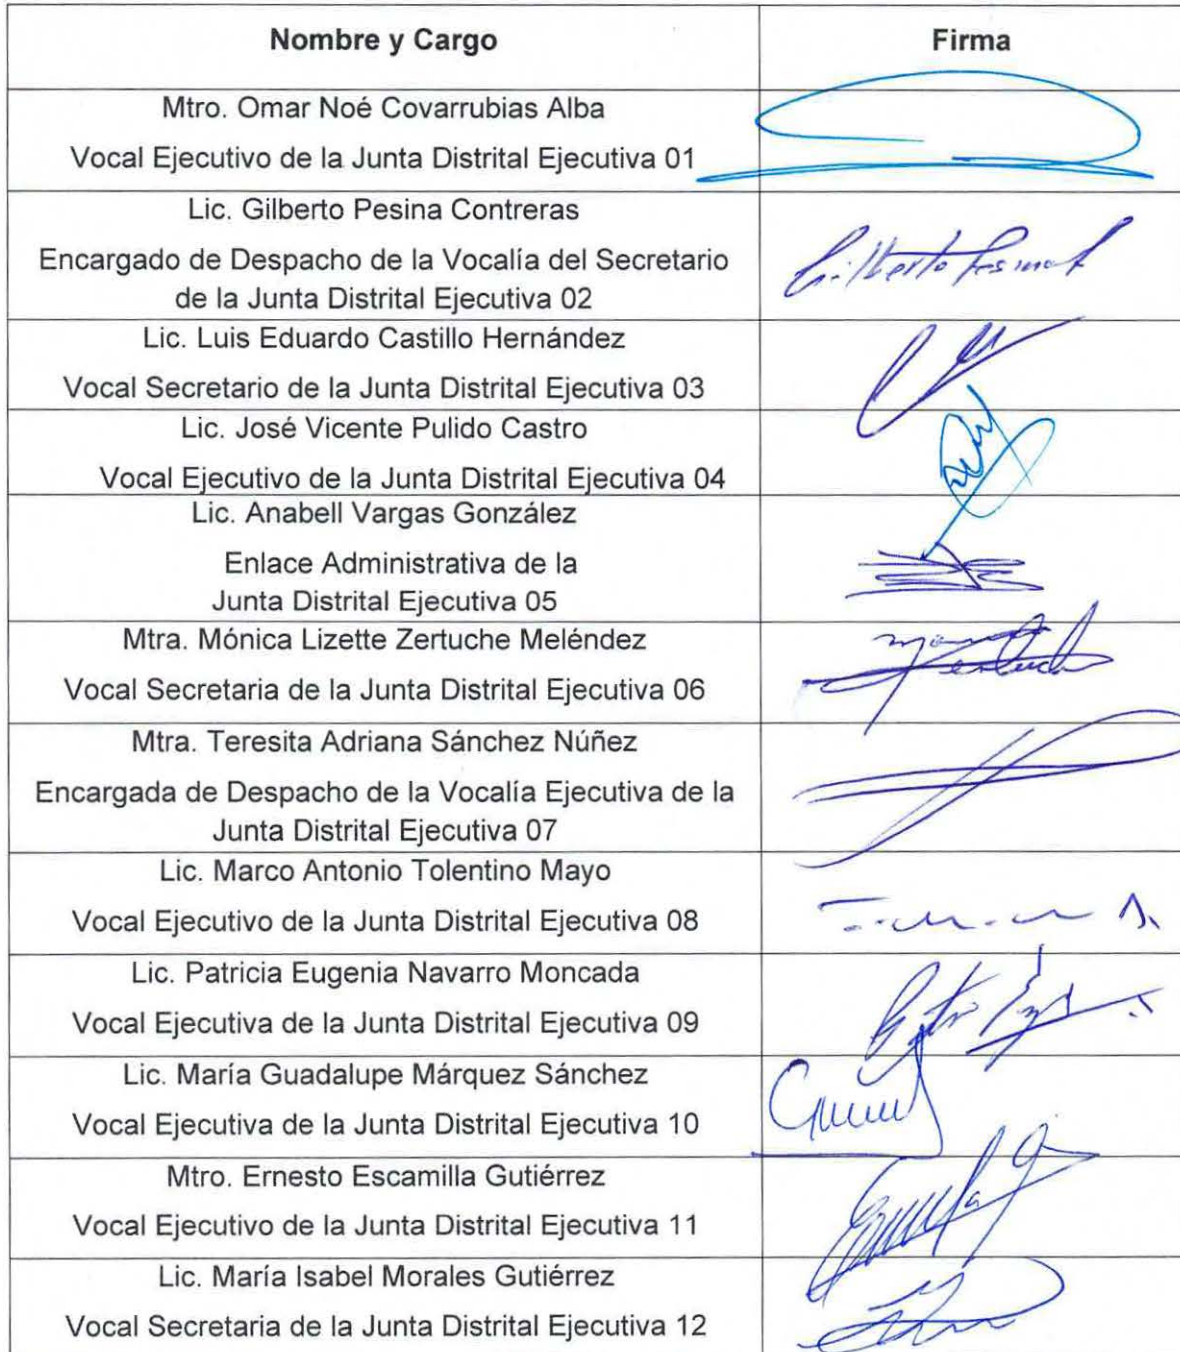 Nombre y Cargo
Firma
Mtro. Omar Noé Covarrubias Alba
Vocal Ejecutivo de la Junta Distrital Ejecutiva 01
Lic. Gilberto Pesina Contreras
Encargado de Despacho de la Vocalía del Secretario
de la Junta Distrital Ejecutiva 02
Gilberto Pesina
Lic. Luis Eduardo Castillo Hernández
Vocal Secretario de la Junta Distrital Ejecutiva 03
Lic. José Vicente Pulido Castro
Vocal Ejecutivo de la Junta Distrital Ejecutiva 04
Lic. Anabell Vargas González
Enlace Administrativa de la
Junta Distrital Ejecutiva 05
Mtra. Mónica Lizette Zertuche Meléndez
Vocal Secretaria de la Junta Distrital Ejecutiva 06
Mtra. Teresita Adriana Sánchez Núñez
Encargada de Despacho de la Vocalía Ejecutiva de la
Junta Distrital Ejecutiva 07
Lic. Marco Antonio Tolentino Mayo
Vocal Ejecutivo de la Junta Distrital Ejecutiva 08
Lic. Patricia Eugenia Navarro Moncada
Vocal Ejecutiva de la Junta Distrital Ejecutiva 09
Lic. María Guadalupe Márquez Sánchez
Vocal Ejecutiva de la Junta Distrital Ejecutiva 10
Mtro. Ernesto Escamilla Gutiérrez
Vocal Ejecutivo de la Junta Distrital Ejecutiva 11
Lic. María Isabel Morales Gutiérrez
Vocal Secretaria de la Junta Distrital Ejecutiva 12